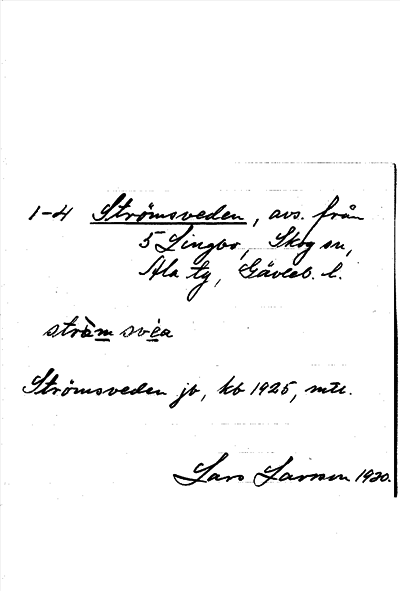 1-4 Strömsveden, avs. från
5 Lingbo, Skog sn,
Ala tg, Gävleb. l.
stræ̀m svéa
Strömsveden jb, kb 1925, mtl.
Lars Larsson 1930.